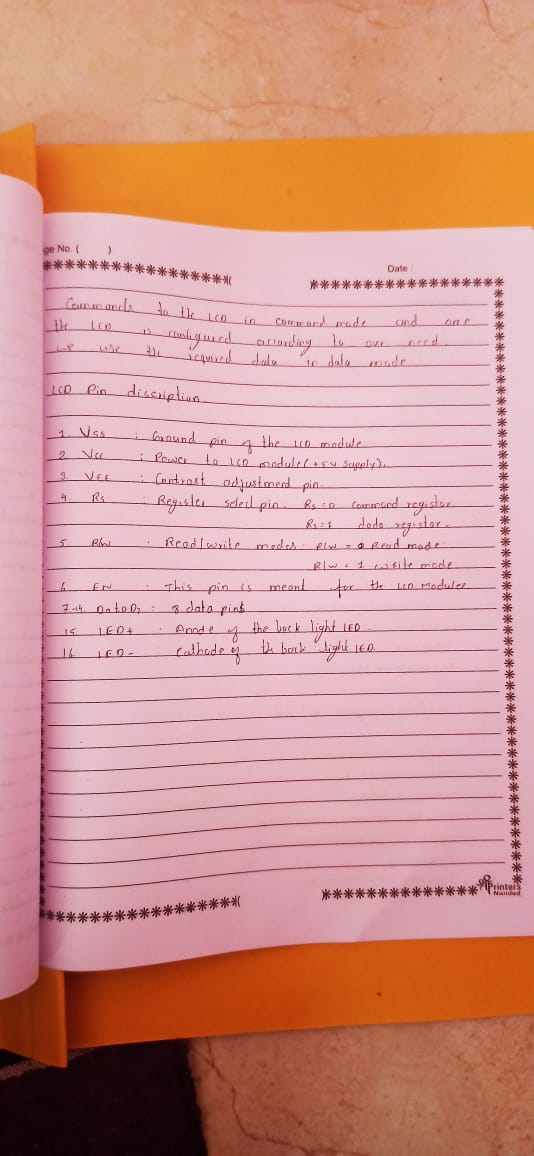 ge No. ( )
Date :
Commands to the LCD in command mode and once
the LCD is configured according to our need
we use the required data in data mode
LCD Pin discription
1. Vss : Ground pin of the LCD module
2. Vcc : Power to LCD module (+5V supply).
3. VEE : Contrast adjustment pin.
4. Rs : Register select pin. Rs=0 command register
Rs=1 data register.
5 R/W : Read/write modes. R/W = 0 Read mode
R/W = 1 write mode
6. EN : This pin is meant for the LCD modulee
7-14. D0 to D7 : 8 data pins
15. LED+ : Anode of the back light LED.
16. LED- : Cathode of th back light LED.
Printers
Nanded